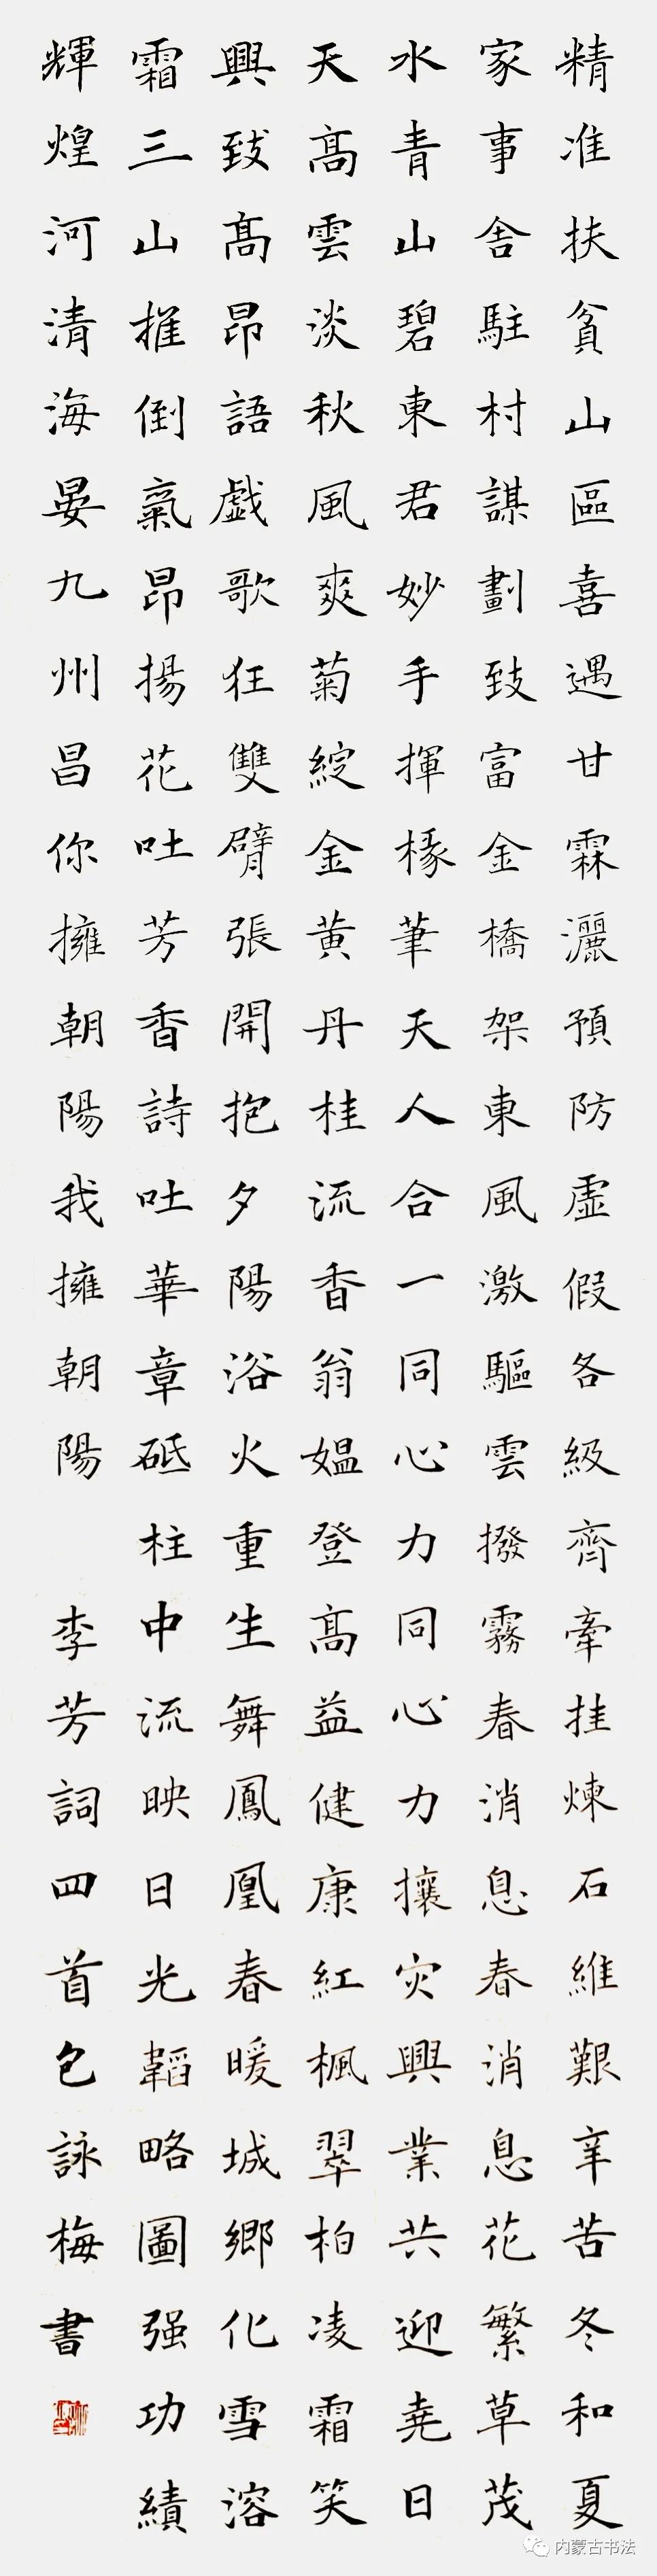 精准扶貧山區喜遇甘霖灑預防虛假各級齊牽挂煉石維艱辛苦冬和夏
家事舍駐村謀劃致富金橋架東風激驅雲撥霧春消息春消息花繁草茂
水青山碧東君妙手揮椽筆天人合一同心力同心力攘灾興業共迎堯日
天高雲淡秋風爽菊綻金黄丹桂流香翁媼登高益健康紅楓翠柏凌霜笑
興致高昂語戲歌狂雙臂張開抱夕陽浴火重生舞鳳凰春暖城鄉化雪溶
霜三山推倒氣昂揚花吐芳香詩吐華章砥柱中流映日光韜略圖强功績
輝煌河清海晏九州昌你擁朝陽我擁朝陽 李芳詞四首包詠梅書
内蒙古书法